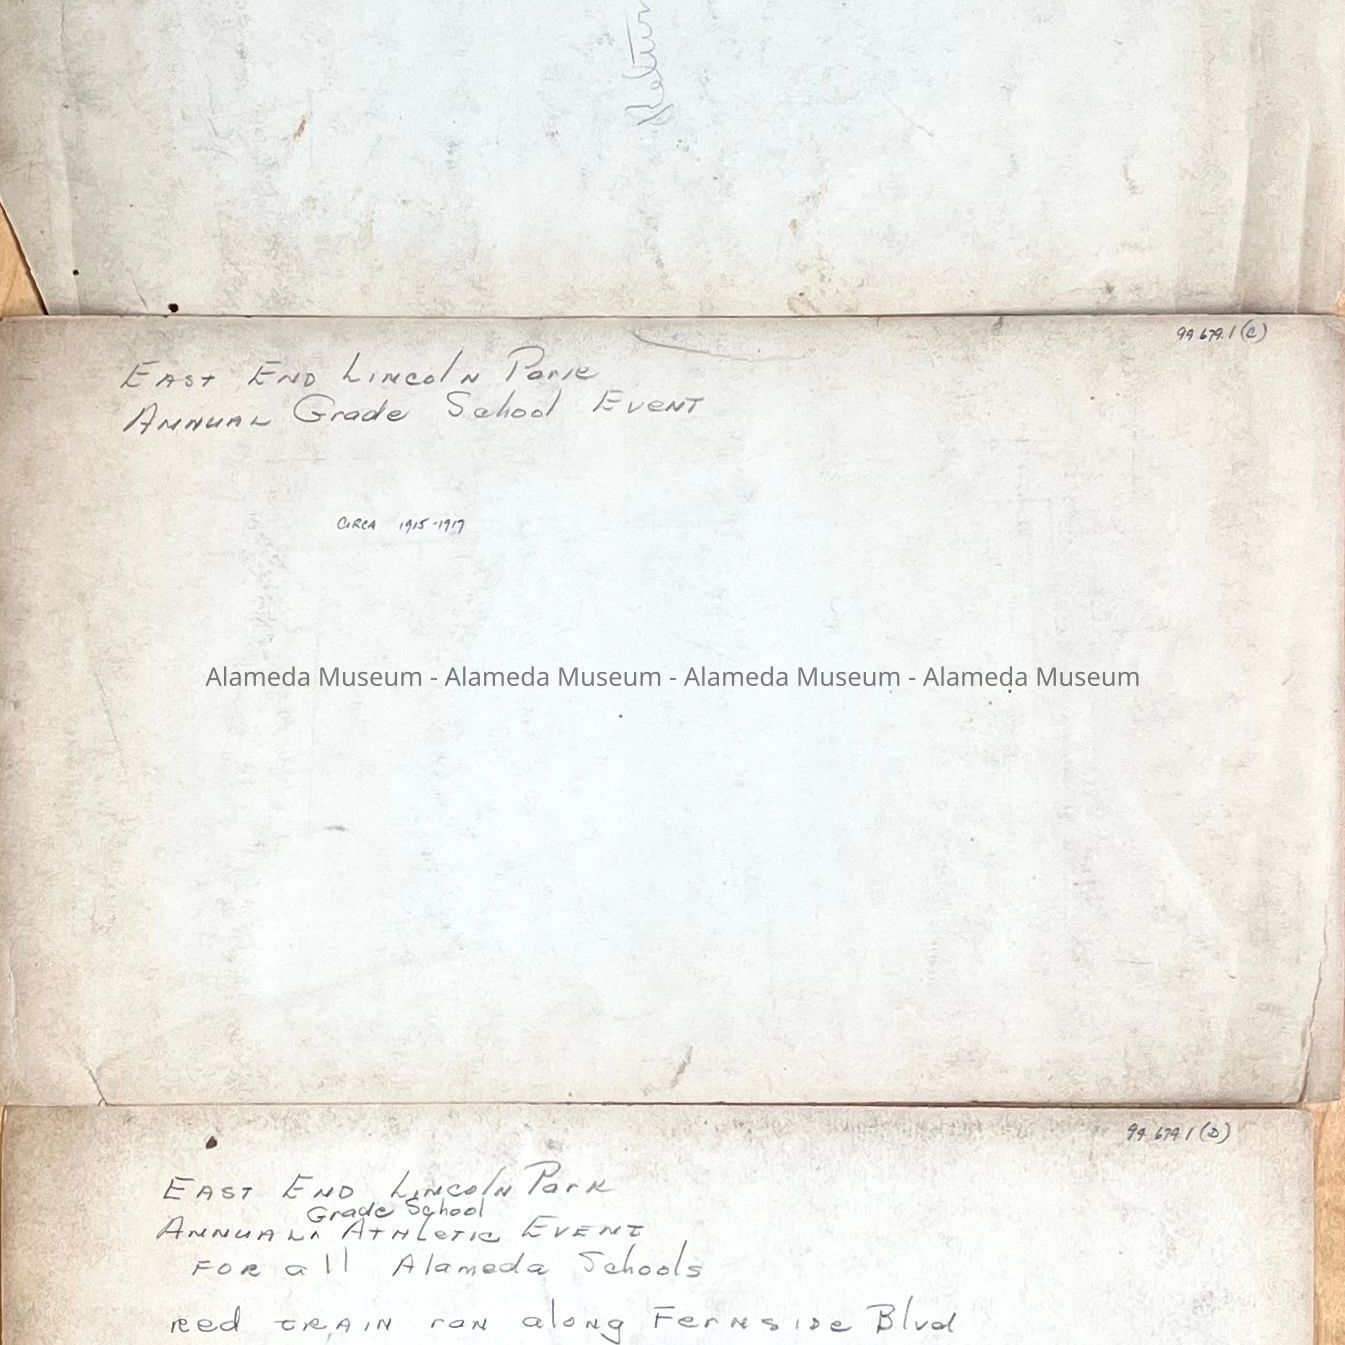 99.679.1(C)
EAST END LINcolN Park
ANNUAL Grade School EVENT
CIRCA 1915-1917
Alameda Museum - Alameda Museum - Alameda Museum - Alameda Museum
99.679.1(D)
EAST END LINcolN Park
Grade School
ANNUAL ^ ATHLETIC EVENT
FOR all Alameda Schools
Red TRAIN ran along FerNSIDe Blvd